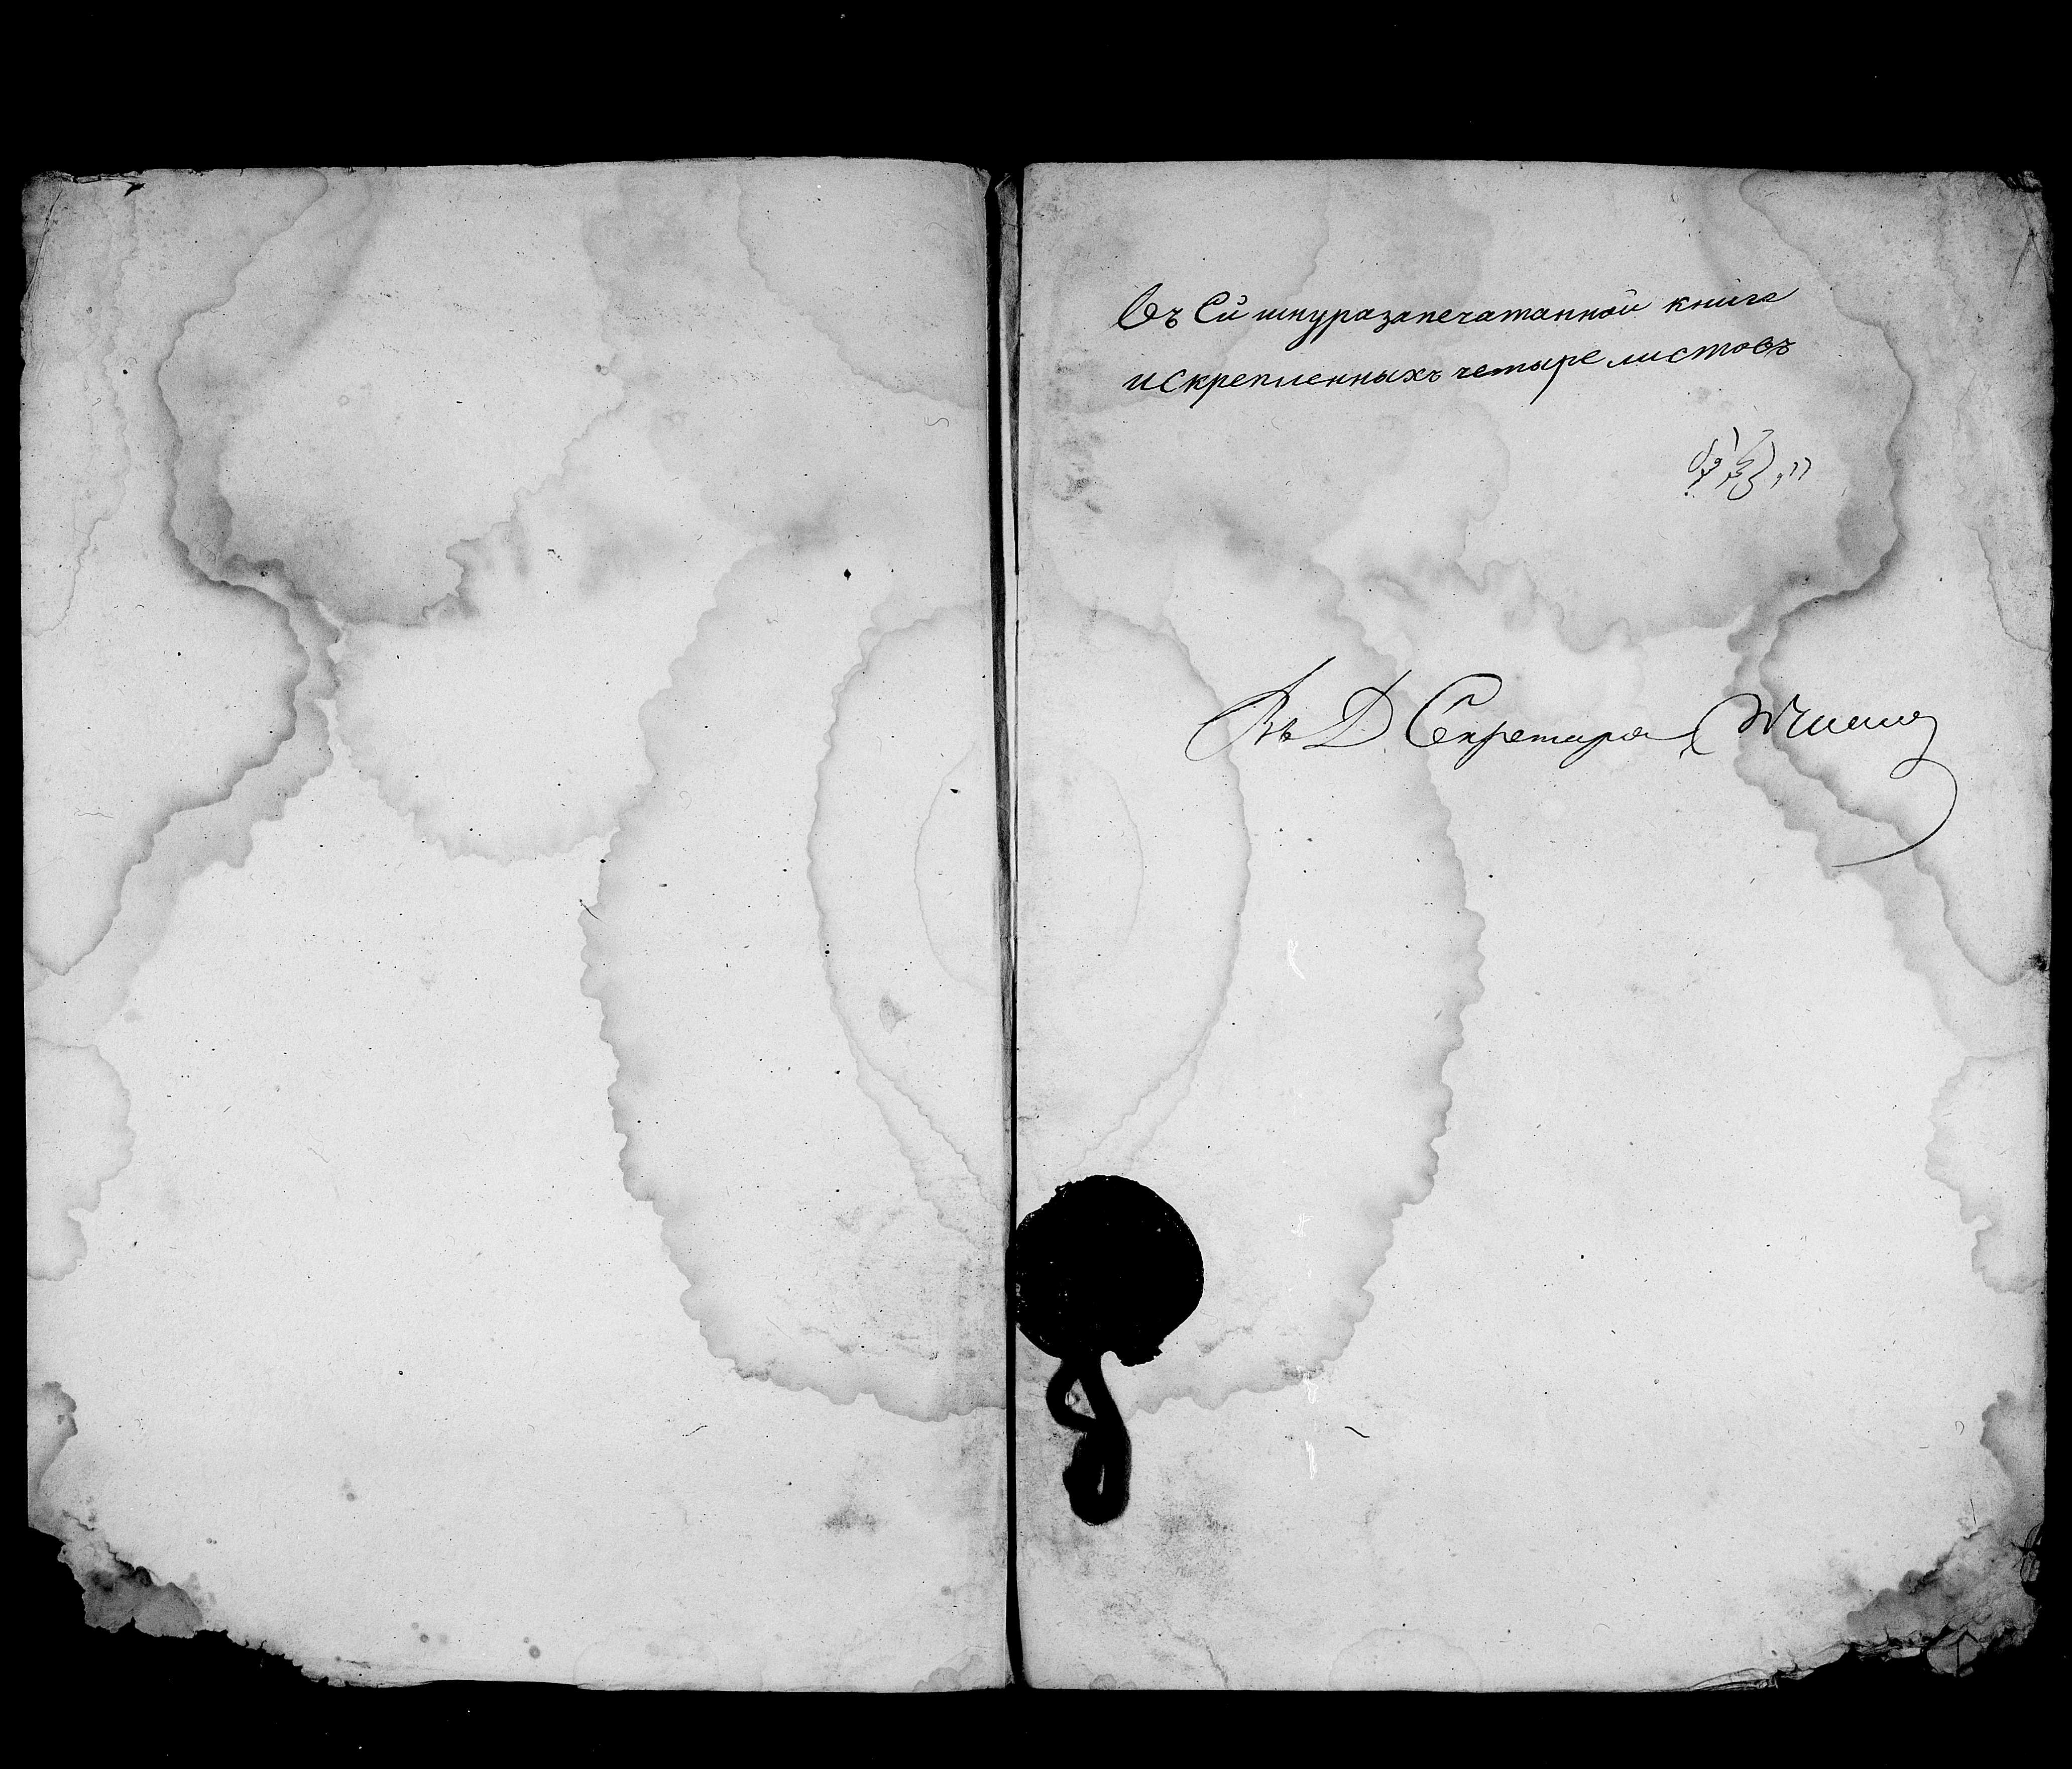 Въ Сй шнуразапечатанной книга
и скрепленныхъ четыре листовъ
Въ Д Секретаря